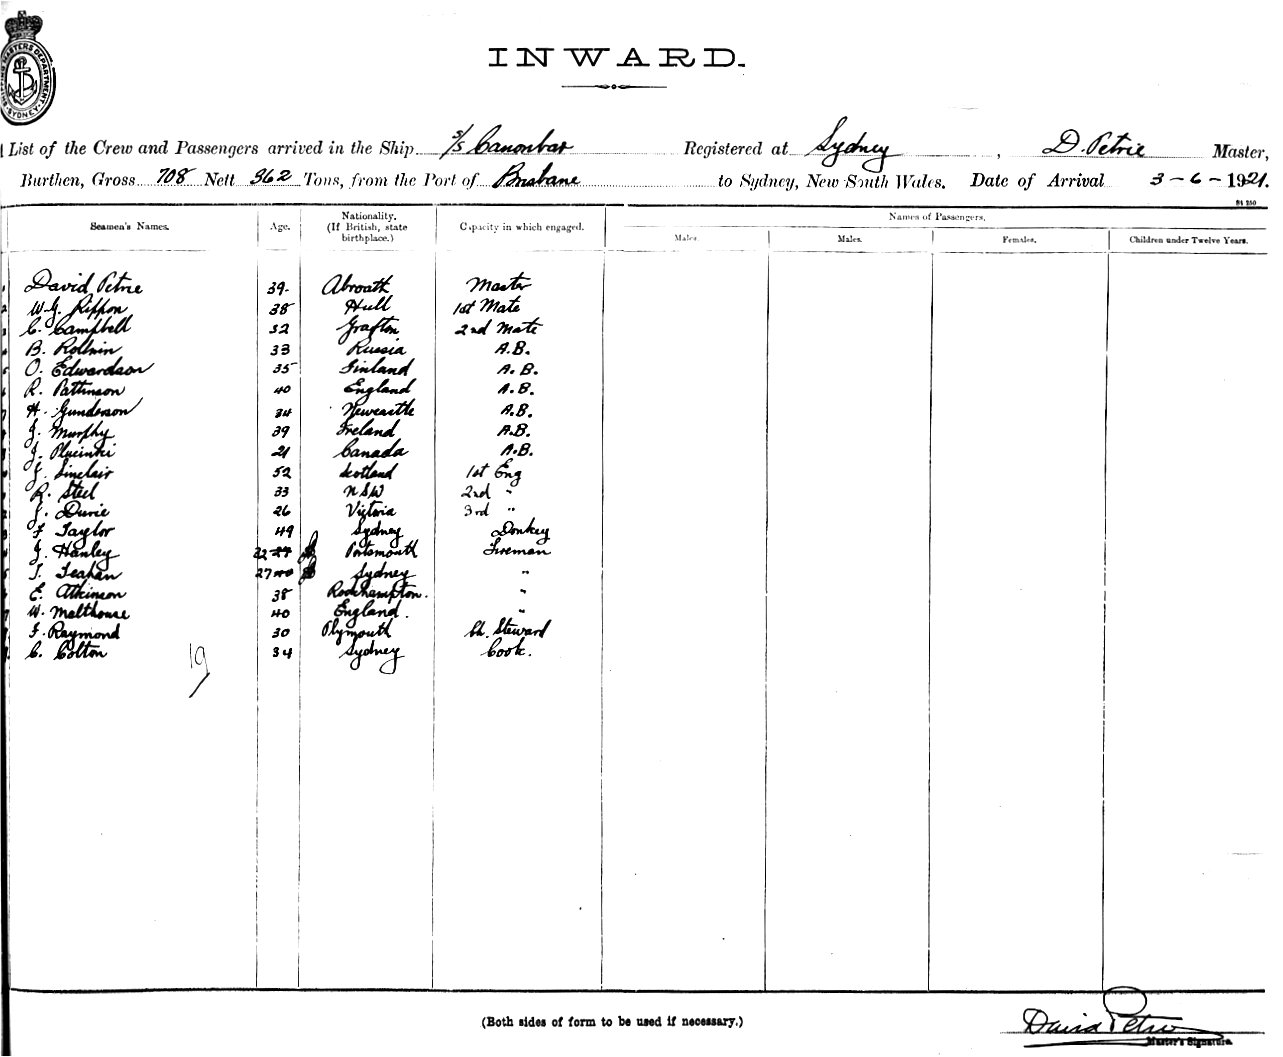 SHIPPING MASTERS DEPARTMENT SYDNEY
INWARD.
List of the Crew and Passengers arrived in the Ship s/s Canonbar Registered at Sydney, D. Petrie Master,
Burthen, Gross 708 Nett 362 Tons, from the Port of Brisbane to Sydney, New South Wales. Date of Arrival 3-6-1921.
St 250
Seamen's Names. Age. Nationality. (If British, state birthplace.) Capacity in which engaged. Names of Passengers.
Males. Males. Females. Children under Twelve Years.
David Petrie 39 Abroath Master
W. G. Rippon 38 Hull 1st Mate
C. Campbell 32 Grafton 2nd Mate
B. Rollnin 33 Russia A.B.
O. Edwardson 35 Finland A.B.
R. Pattinson 40 England A.B.
H. Gunderson 34 Newcastle A.B.
J. Murphy 39 Ireland A.B.
J. 21 Canada A.B.
J. Sinclair 52 Scotland 1st Eng
R. Steel 33 NSW 2nd "
J. Durie 26 Victoria 3rd "
F. Taylor 49 Sydney Donkey
J. Hanley 22 Portsmouth Fireman
T. Teahan 27 Sydney "
E. Atkinson 38 Rockhampton. "
W. Malthouse 40 England. "
F. Raymond 30 Plymouth Ch. Steward
C. Colton 34 Sydney Cook.
19
(Both sides of form to be used if necessary.)
David Petrie
Master's Signature.